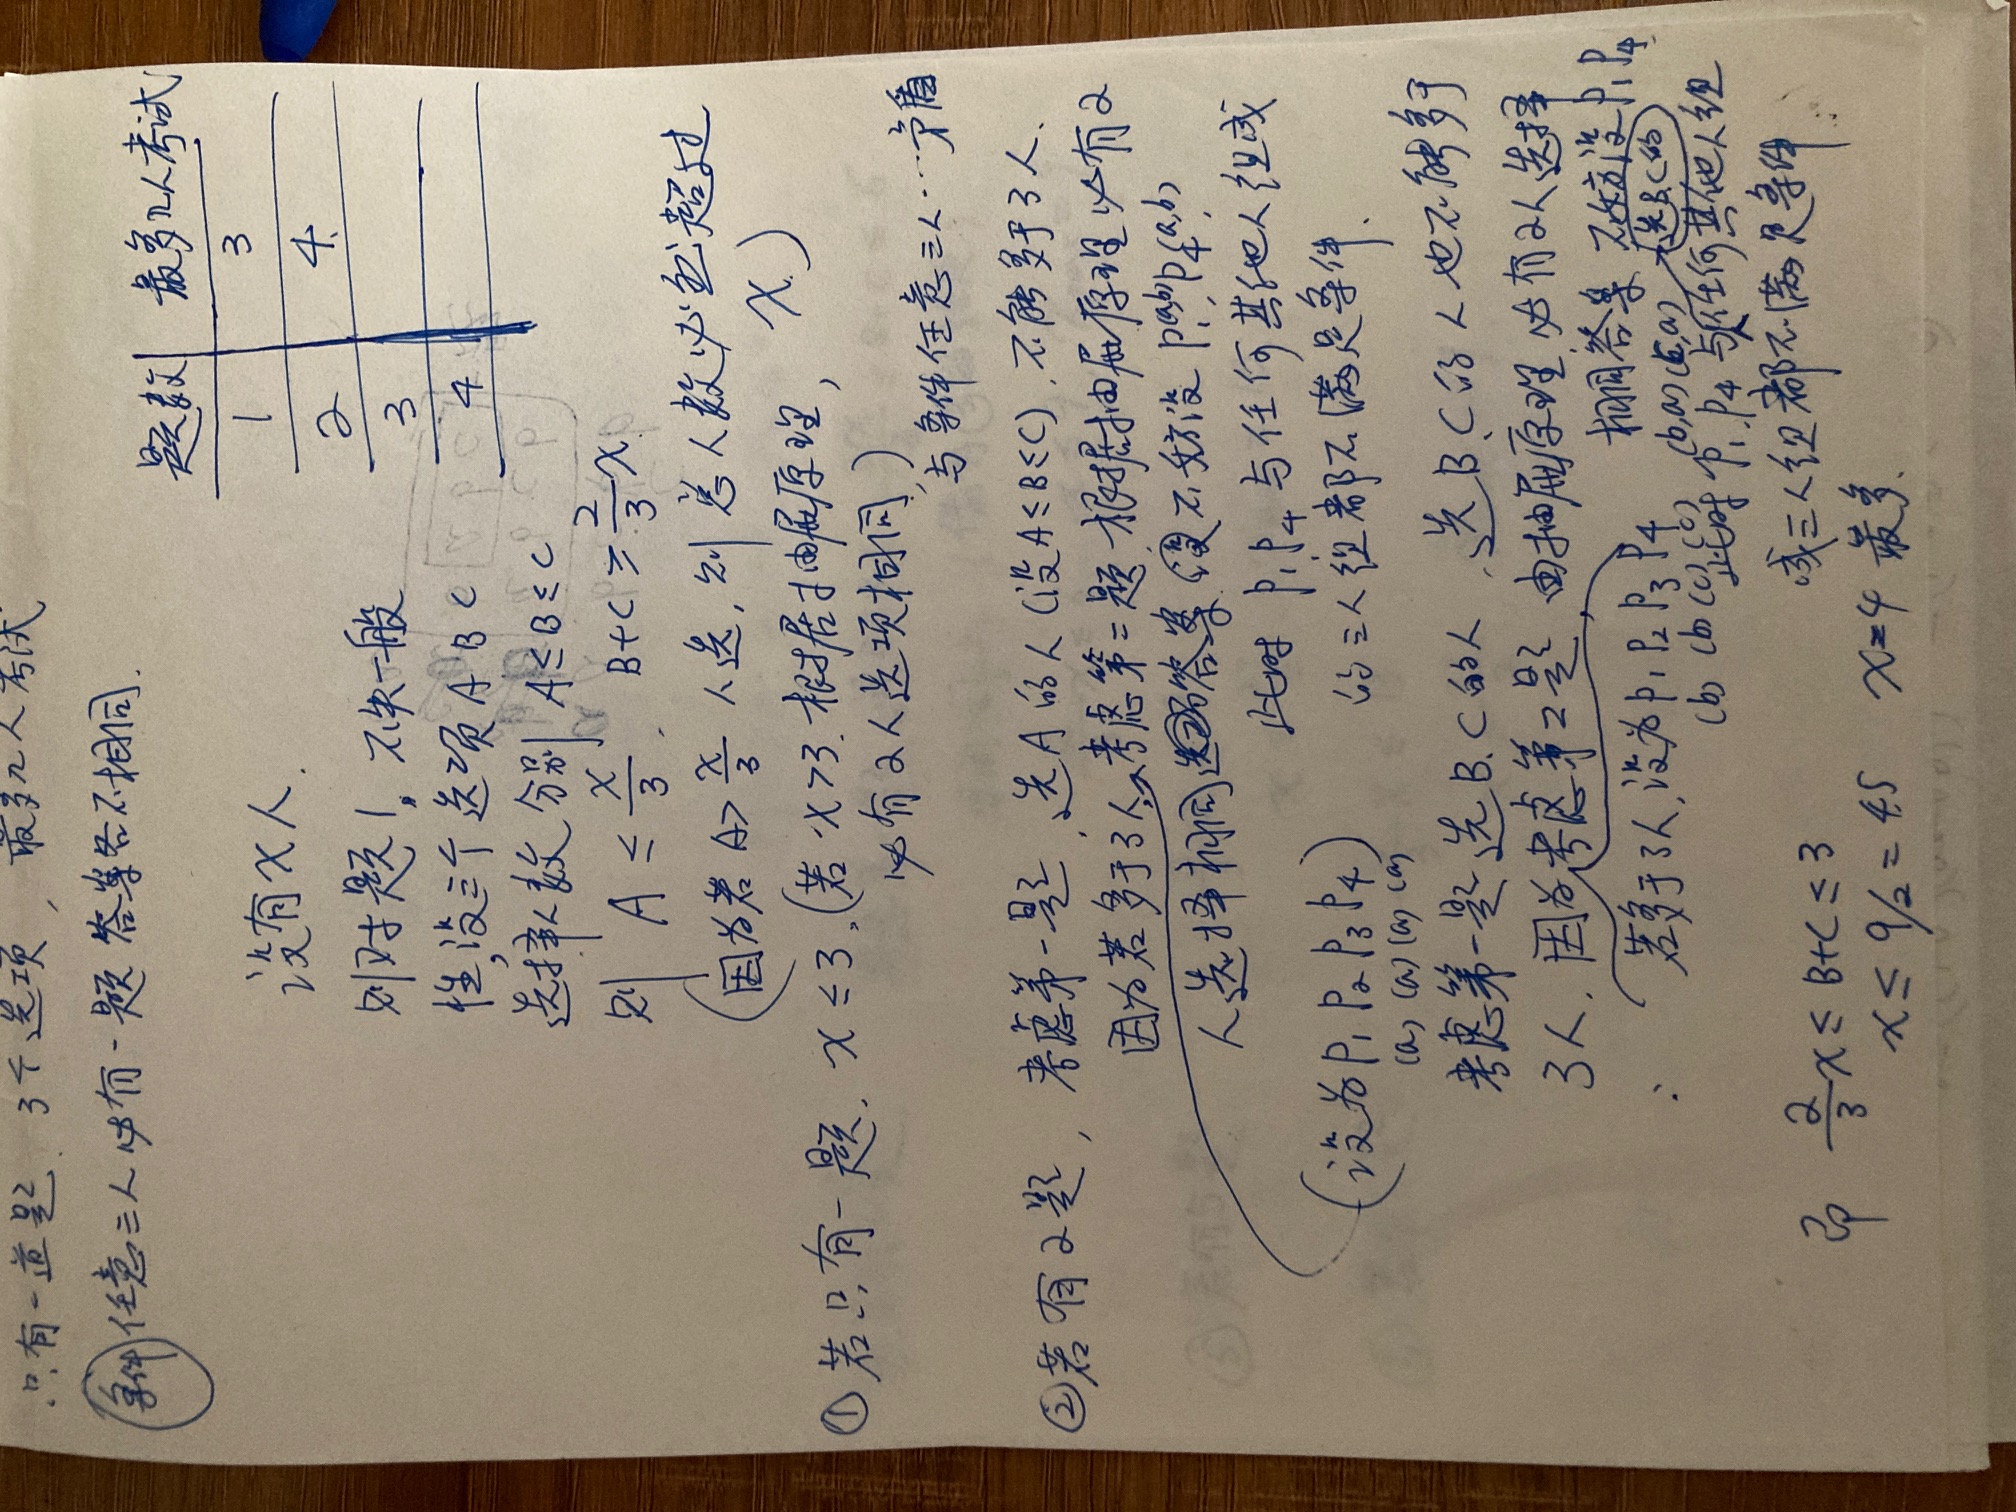 只有一道题 3个选项, 最多几人考试
条件 任意三人必有一题答案各不相同.
题数 最多几人考试
1 3
2 4
3
4
设有x人.
则对题1, 不失一般
性,设三个选项 A B C
选择人数分别 A≤B≤C
则 A ≤ x/3. B+C ≥ 2/3 x.
(因为若 A> x/3 人选, 则总人数必超过
x.)
① 若只有一题. x≤3. (若x>3. 根据抽屉原理,
必有2人选项相同.)
与条件任意三人……矛盾
② 若有2题, 考虑第一题, 选A的人 (设A≤B≤C). 不能多于3人.
因为若多于3人, 考虑第二题. 根据抽屉原理必有2
人选择相同答案 不妨设 P₁(a,b) P₄(a,b),
此时 P₁P₄与任何其他人组成
的三人组都不满足条件.
(设为 P₁ P₂ P₃ P₄)
(a) (a) (a) (a)
考虑第一题 选B.C的人. 选B.C的人也不能多于
3人. 因为考虑第2题 由抽屉原理必有2人选择
相同答案 不妨设P₁P₄
若多于3人, 设为 P₁ P₂ P₃ P₄
选B.C的
此时 P₁.P₄与任何其他人组
成三人组都不满足条件
∴
即 2/3 x ≤ B+C ≤ 3
x ≤ 9/2 = 4.5 x=4 最多.